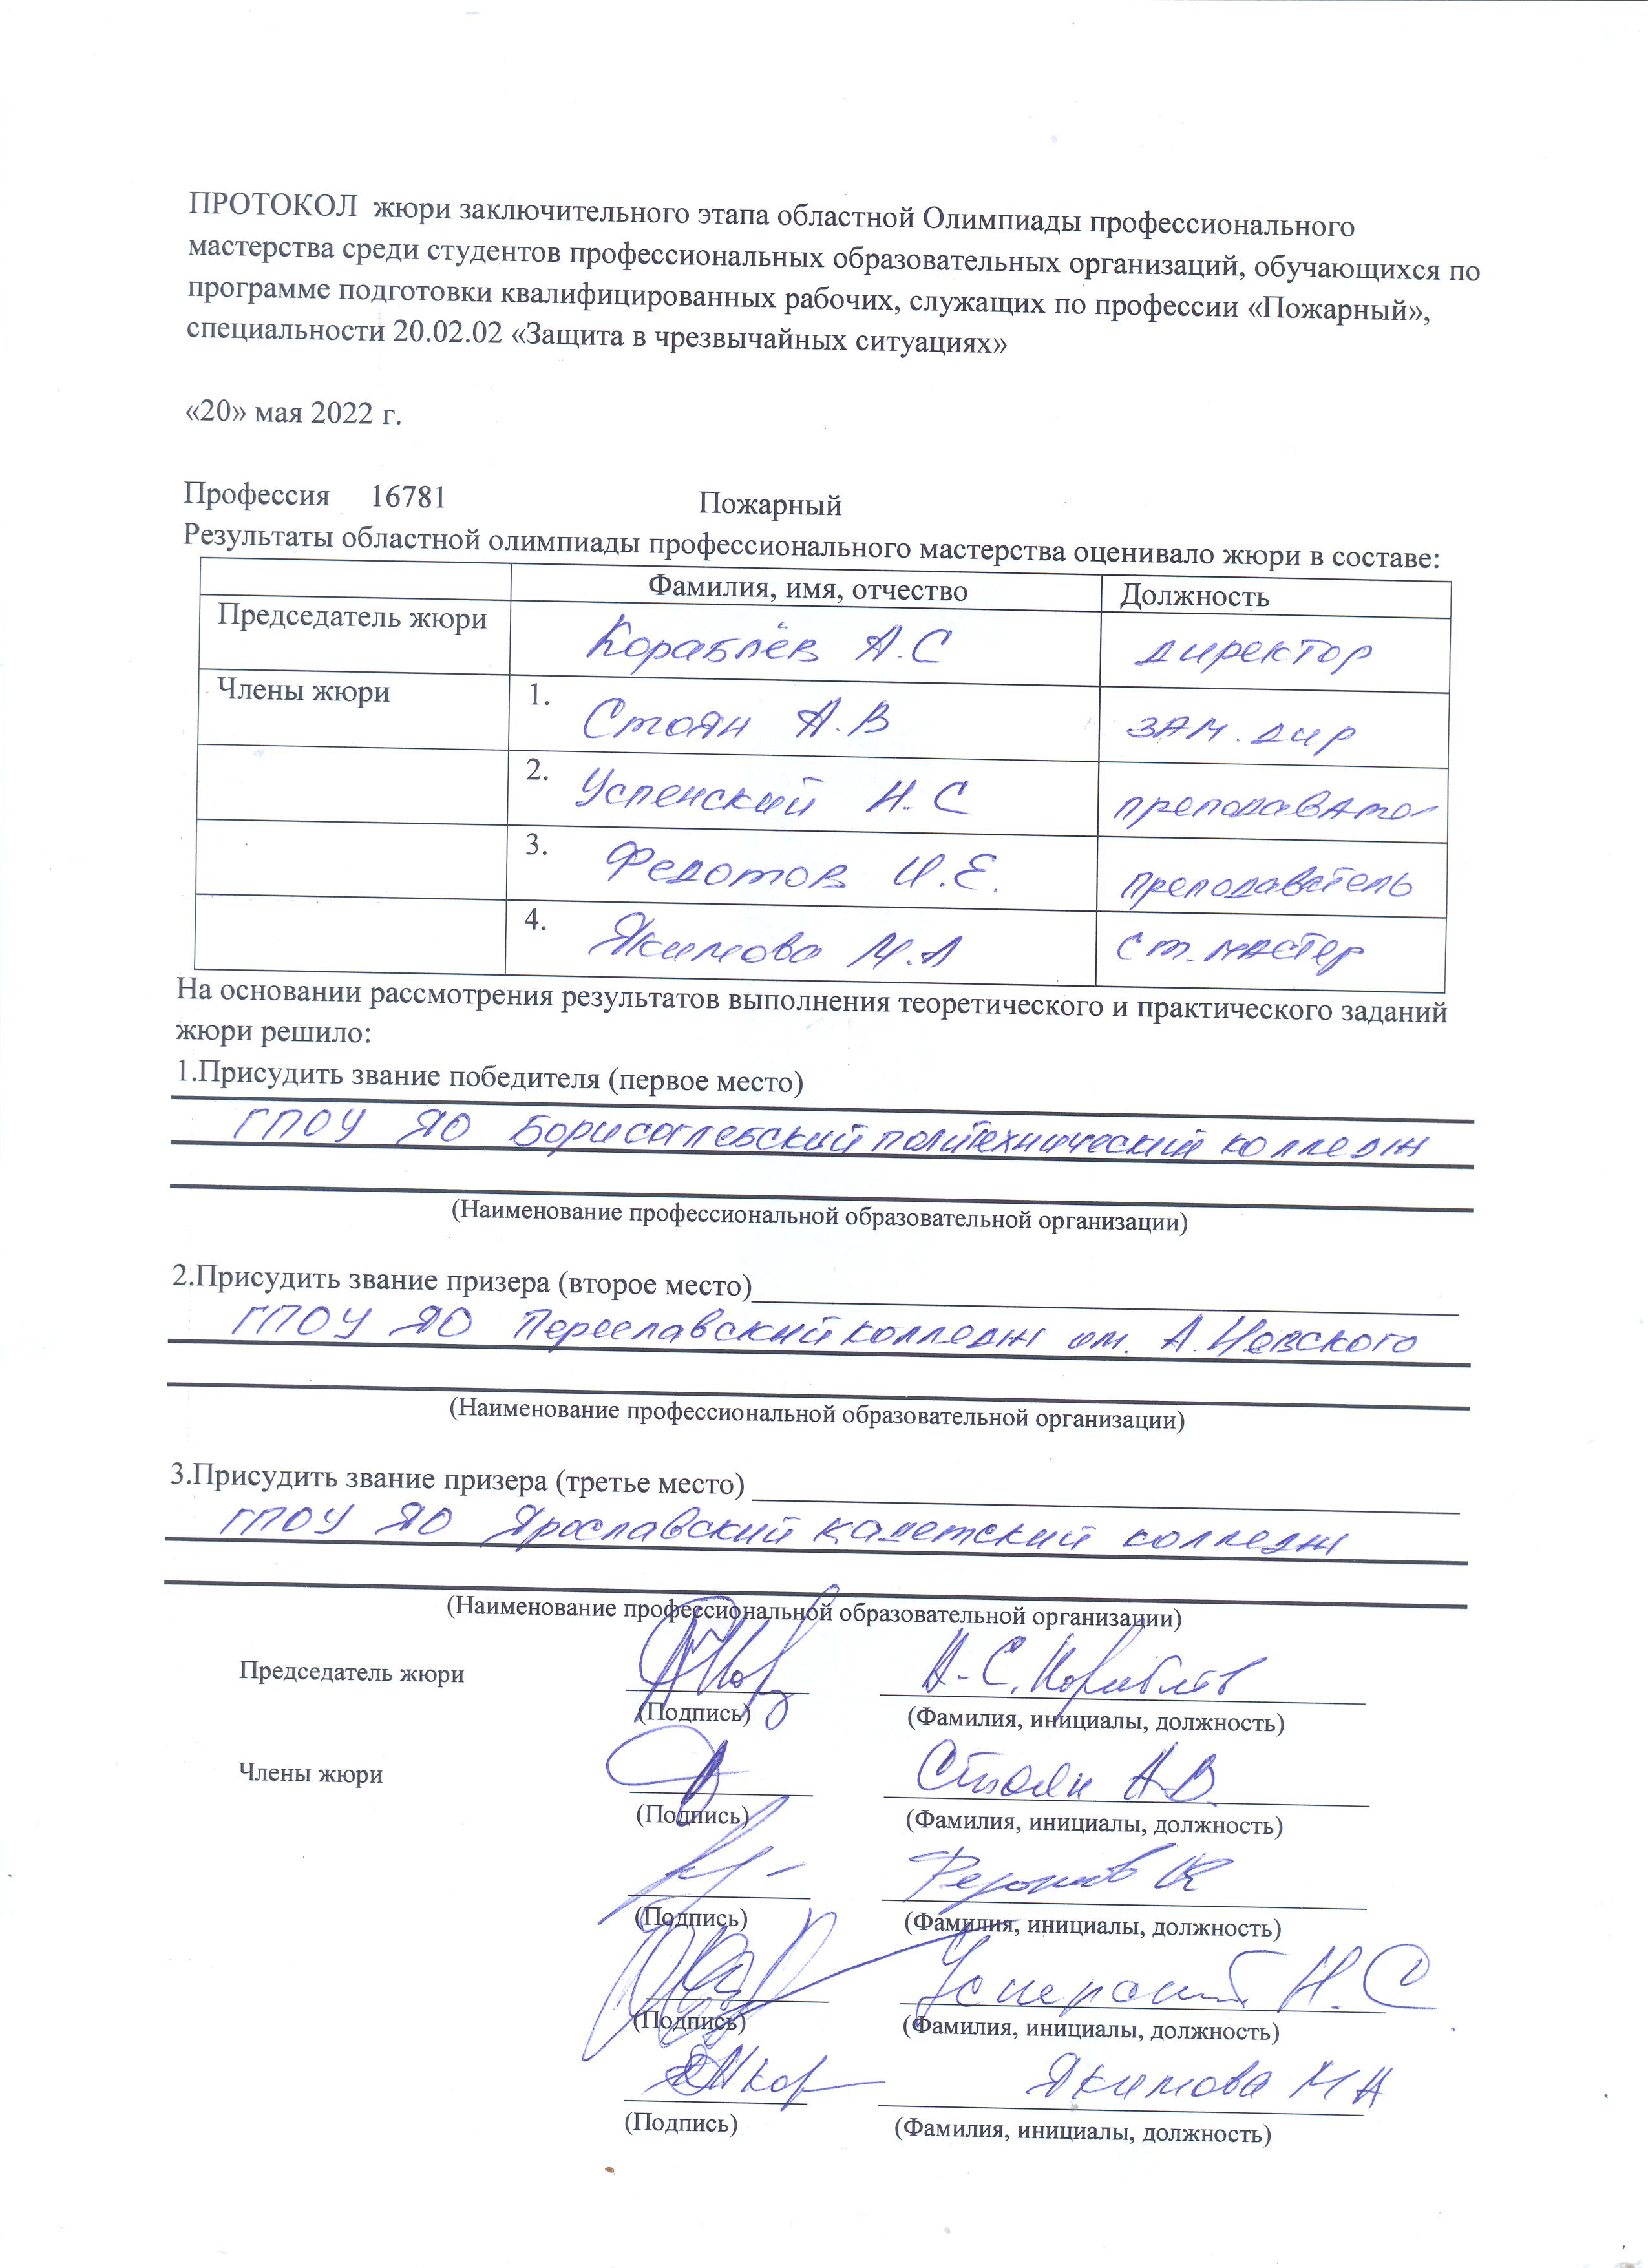 ПРОТОКОЛ жюри заключительного этапа областной Олимпиады профессионального
мастерства среди студентов профессиональных образовательных организаций, обучающихся по
программе подготовки квалифицированных рабочих, служащих по профессии «Пожарный»,
специальности 20.02.02 «Защита в чрезвычайных ситуациях»
«20» мая 2022 г.
Профессия 16781 Пожарный
Результаты областной олимпиады профессионального мастерства оценивало жюри в составе:
Фамилия, имя, отчество Должность
Председатель жюри Кораблёв А.С директор
Члены жюри 1. Стоян А.В зам. дир
2. Успенский Н.С преподавато
3. Федотов И.Е. преподаватель
4. Якимова М.А ст. мастер
На основании рассмотрения результатов выполнения теоретического и практического заданий
жюри решило:
1.Присудить звание победителя (первое место)
ГПОУ ЯО Борисоглебский политехнический колледж
(Наименование профессиональной образовательной организации)
2.Присудить звание призера (второе место)
ГПОУ ЯО Переславский колледж им. А. Невского
(Наименование профессиональной образовательной организации)
3.Присудить звание призера (третье место)
ГПОУ ЯО Ярославский кадетский колледж
(Наименование профессиональной образовательной организации)
Председатель жюри А.С. Кораблёв
(Подпись) (Фамилия, инициалы, должность)
Члены жюри Стоян А.В.
(Подпись) (Фамилия, инициалы, должность)
Федотов
(Подпись) (Фамилия, инициалы, должность)
Н.С
(Подпись) (Фамилия, инициалы, должность)
Якимова М А
(Подпись) (Фамилия, инициалы, должность)